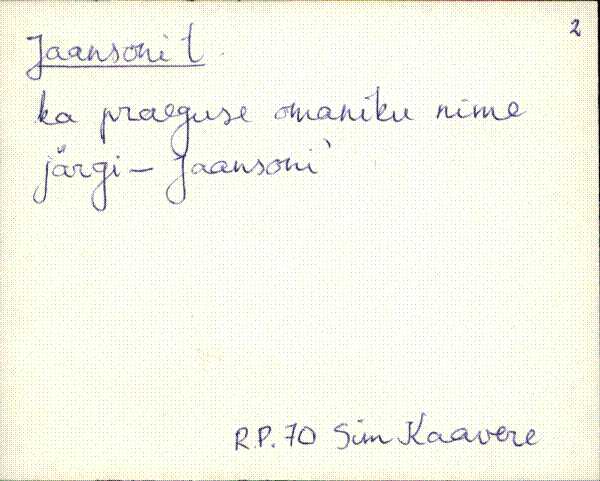 2
Jaansoni t
ka praeguse omaniku nime
järgi – Jaansoni`
R.P. 70 Sim Kaavere